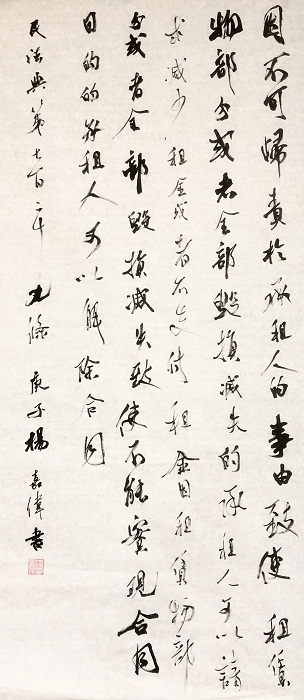 因不可歸責於承租人的事由致使租賃
物部分或者全部毀損滅失的承租人可以請
求減少租金或者不支付租金因租賃物部
分或者全部毀損滅失致使不能實現合同
目的的承租人可以解除合同
民法典第七百二十九條 庚子楊嘉偉書